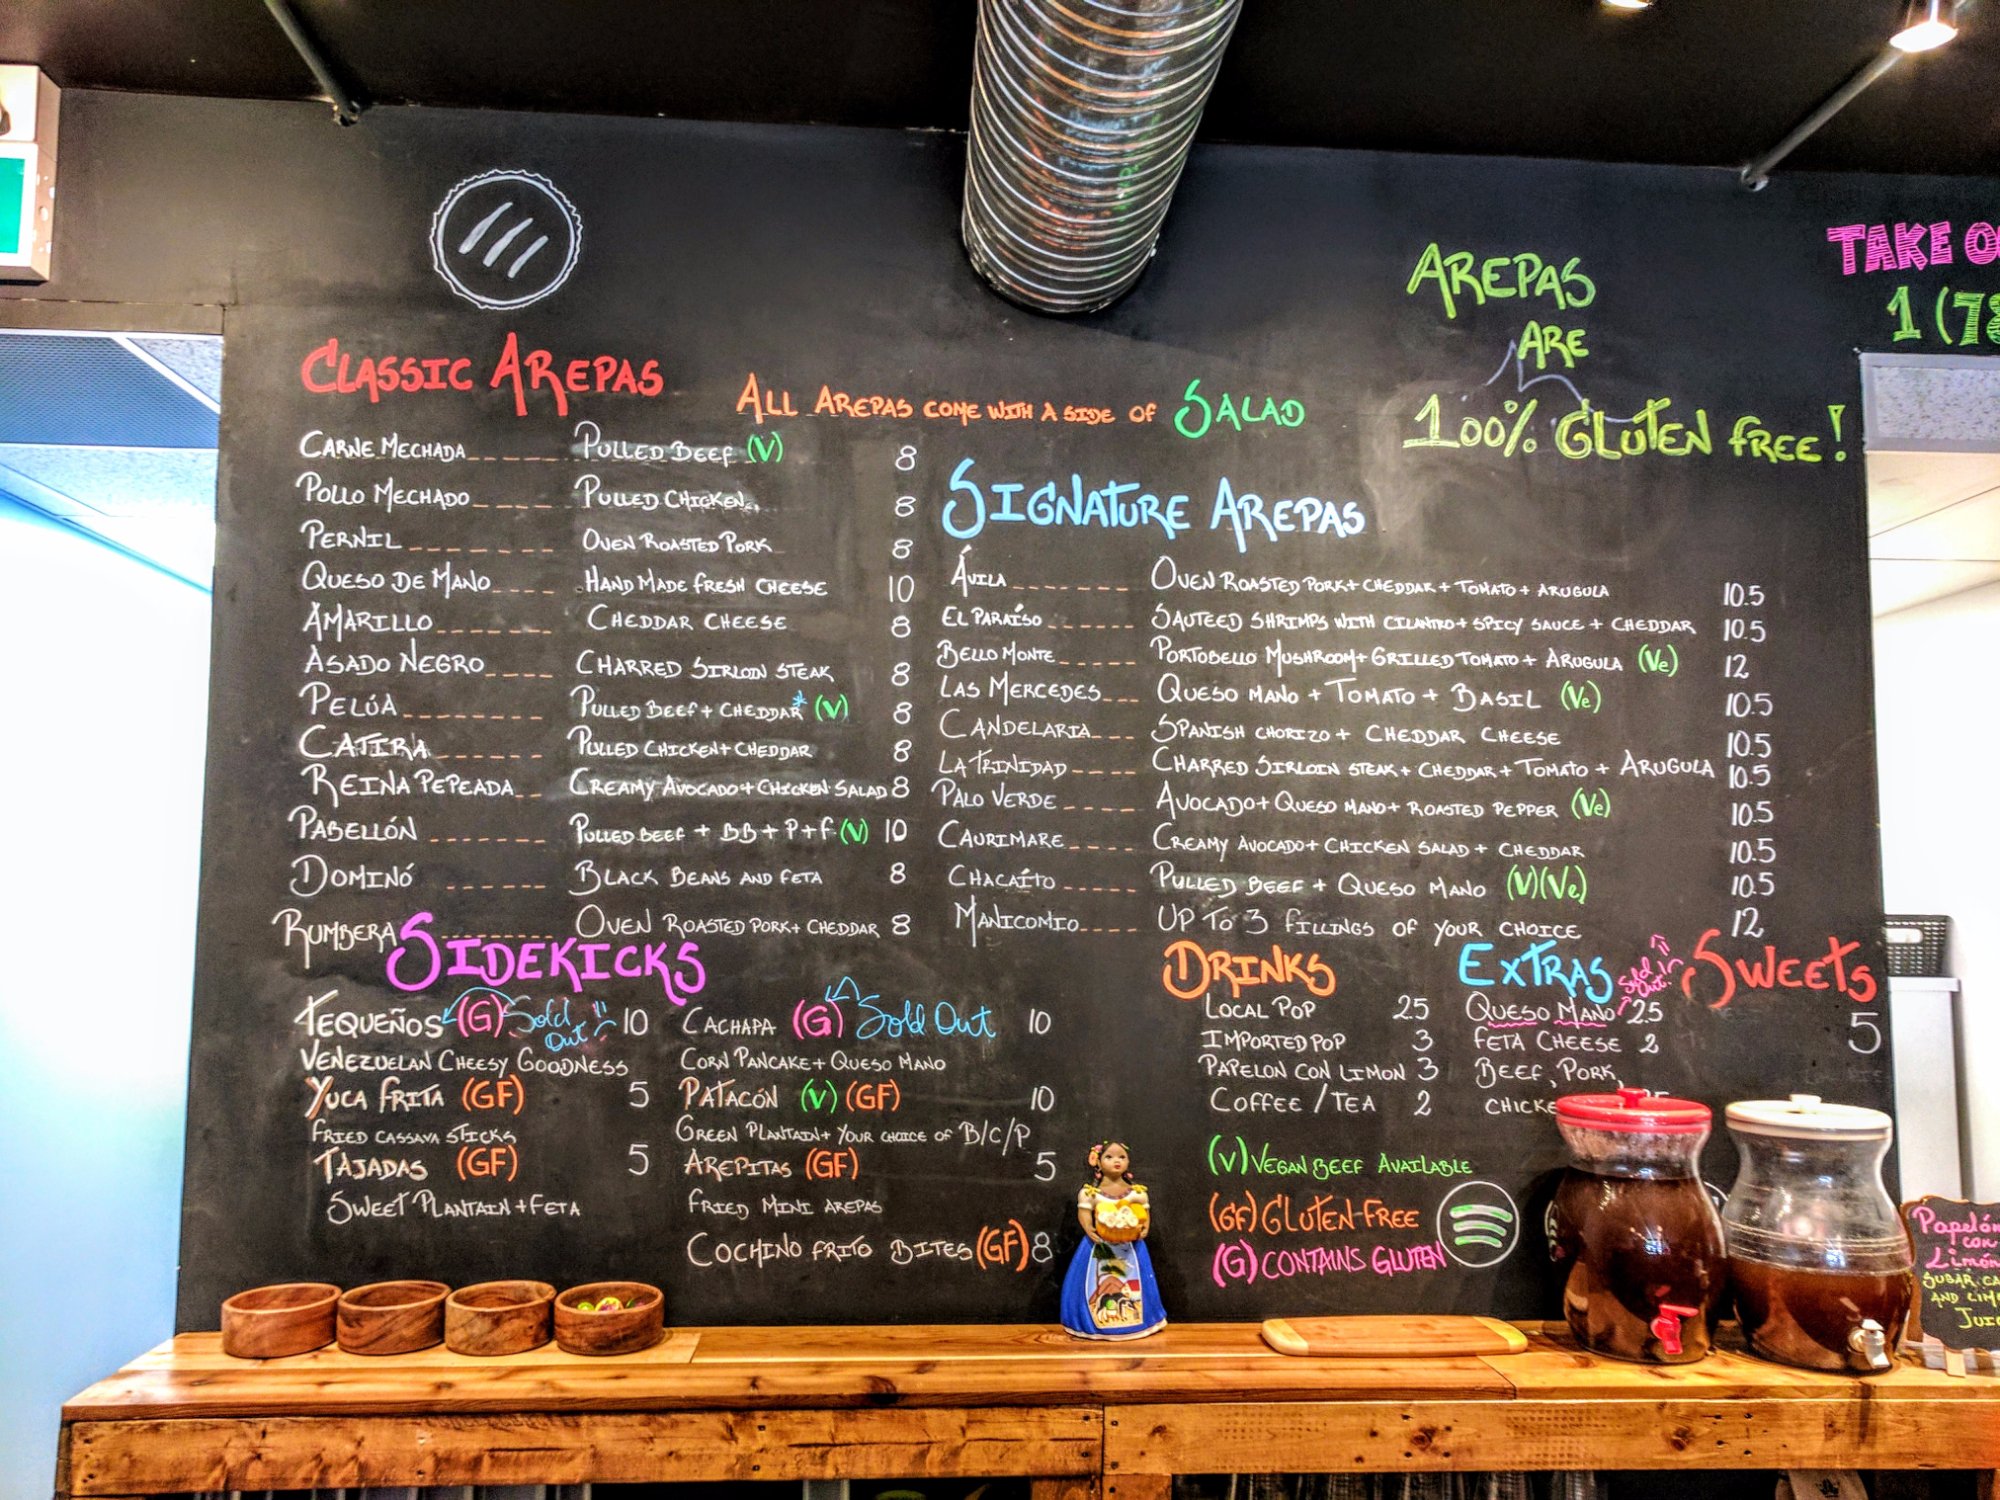 TAKE O
1 (78
AREPAS
ARE
100% GLUTEN FREE!
CLASSIC AREPAS
ALL AREPAS COME WITH A SIDE OF SALAD
CARNE MECHADA PULLED BEEF (V) 8
POLLO MECHADO PULLED CHICKEN 8
PERNIL OVEN ROASTED PORK 8
QUESO DE MANO HAND MADE FRESH CHEESE 10
AMARILLO CHEDDAR CHEESE 8
ASADO NEGRO CHARRED SIRLOIN STEAK 8
PELÚA PULLED BEEF + CHEDDAR* (V) 8
CATIRA PULLED CHICKEN + CHEDDAR 8
REINA PEPEADA CREAMY AVOCADO + CHICKEN SALAD 8
PABELLÓN PULLED BEEF + BB + P + F (V) 10
DOMINÓ BLACK BEANS AND FETA 8
RUMBERA OVEN ROASTED PORK + CHEDDAR 8
SIGNATURE AREPAS
ÁVILA OVEN ROASTED PORK + CHEDDAR + TOMATO + ARUGULA 10.5
EL PARAÍSO SAUTEED SHRIMPS WITH CILANTRO + SPICY SAUCE + CHEDDAR 10.5
BELLO MONTE PORTOBELLO MUSHROOM + GRILLED TOMATO + ARUGULA (Ve) 12
LAS MERCEDES QUESO MANO + TOMATO + BASIL (Ve) 10.5
CANDELARIA SPANISH CHORIZO + CHEDDAR CHEESE 10.5
LA TRINIDAD CHARRED SIRLOIN STEAK + CHEDDAR + TOMATO + ARUGULA 10.5
PALO VERDE AVOCADO + QUESO MANO + ROASTED PEPPER (Ve) 10.5
CAURIMARE CREAMY AVOCADO + CHICKEN SALAD + CHEDDAR 10.5
CHACAÍTO PULLED BEEF + QUESO MANO (V)(Ve) 10.5
MANICOMIO UP TO 3 FILLINGS OF YOUR CHOICE 12
SIDEKICKS
TEQUEÑOS (G) Sold Out 10
VENEZUELAN CHEESY GOODNESS
YUCA FRITA (GF) 5
FRIED CASSAVA STICKS
TAJADAS (GF) 5
SWEET PLANTAIN + FETA
CACHAPA (G) Sold Out 10
CORN PANCAKE + QUESO MANO
PATACÓN (V) (GF) 10
GREEN PLANTAIN + YOUR CHOICE OF B/C/P
AREPITAS (GF) 5
FRIED MINI AREPAS
COCHINO FRITO BITES (GF) 8
DRINKS
LOCAL POP 2.5
IMPORTED POP 3
PAPELON CON LIMON 3
COFFEE / TEA 2
EXTRAS
Sold Out!
QUESO MANO 2.5
FETA CHEESE 2
BEEF, PORK,
CHICKE
SWEETS
5
(V) VEGAN BEEF AVAILABLE
(GF) GLUTEN-FREE
(G) CONTAINS GLUTEN
Papelón
con
Limón
SUGAR CA
AND LIM
JUIC